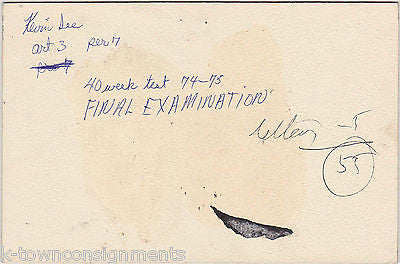 Kevin Dee
art 3 per 7
per 7
40 week test 74-75
FINAL EXAMINATION
-5
53
k-townconsignments